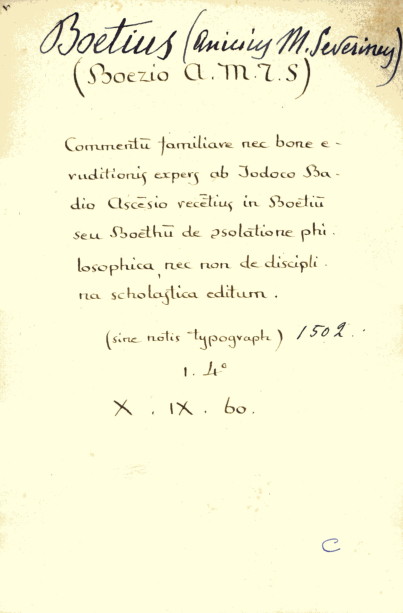 Boetius (Anicius M. Severinus)
(Boezio A. M. T. S)
Commentū familiare nec bone e-
ruditionis expers ab Jodoco Ba-
dio Ascēsio recētius in Boëtiū
seu Boëthū de ↄsolatione phi.
losophica, nec non de discipli.
na scholastica editum.
(sine notis typograph) 1502.
1. 4°
X. IX. 60.
C